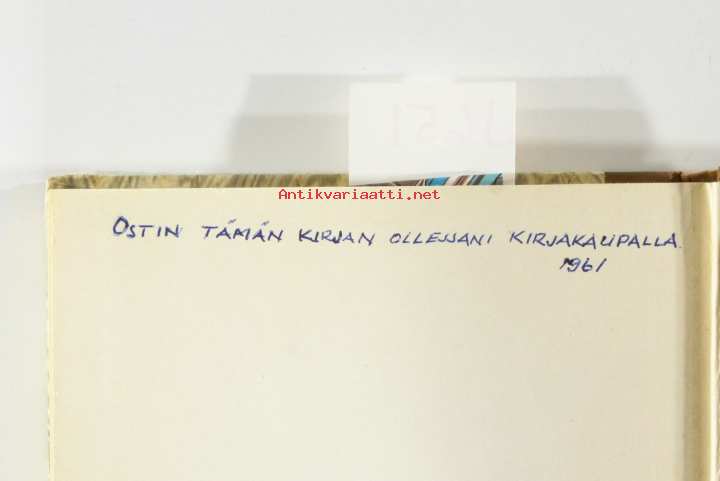 Antikvariaatti.net
OSTIN TÄMÄN KIRJAN OLLESSANI KIRJAKAUPALLA.
1961